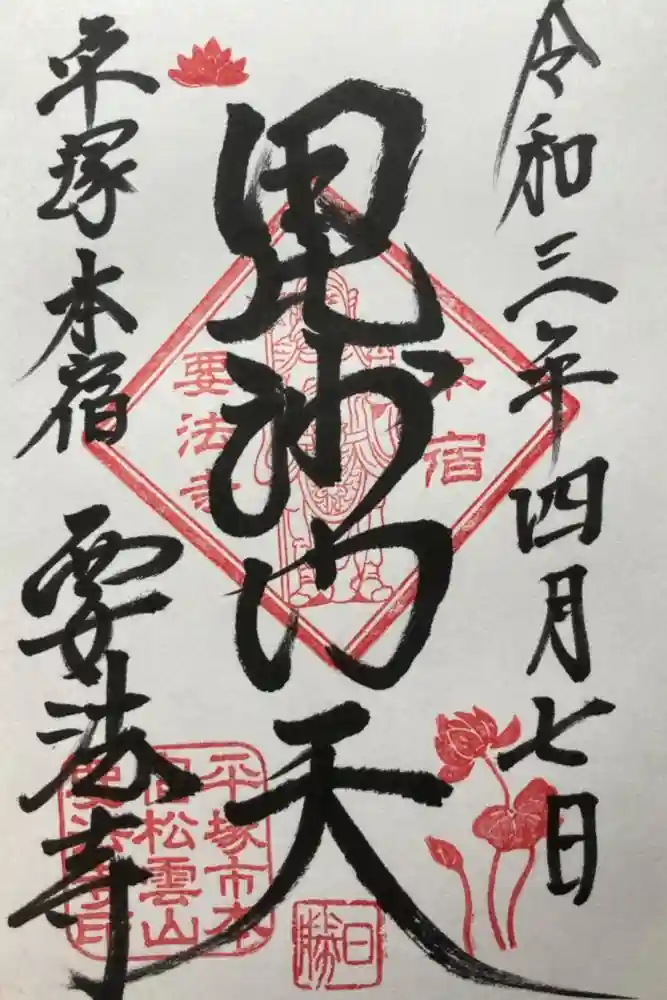 令和三年四月七日
毘沙門天
平塚本宿
要法寺
本宿
要法寺
平塚市本
宿松雲山
要法寺印